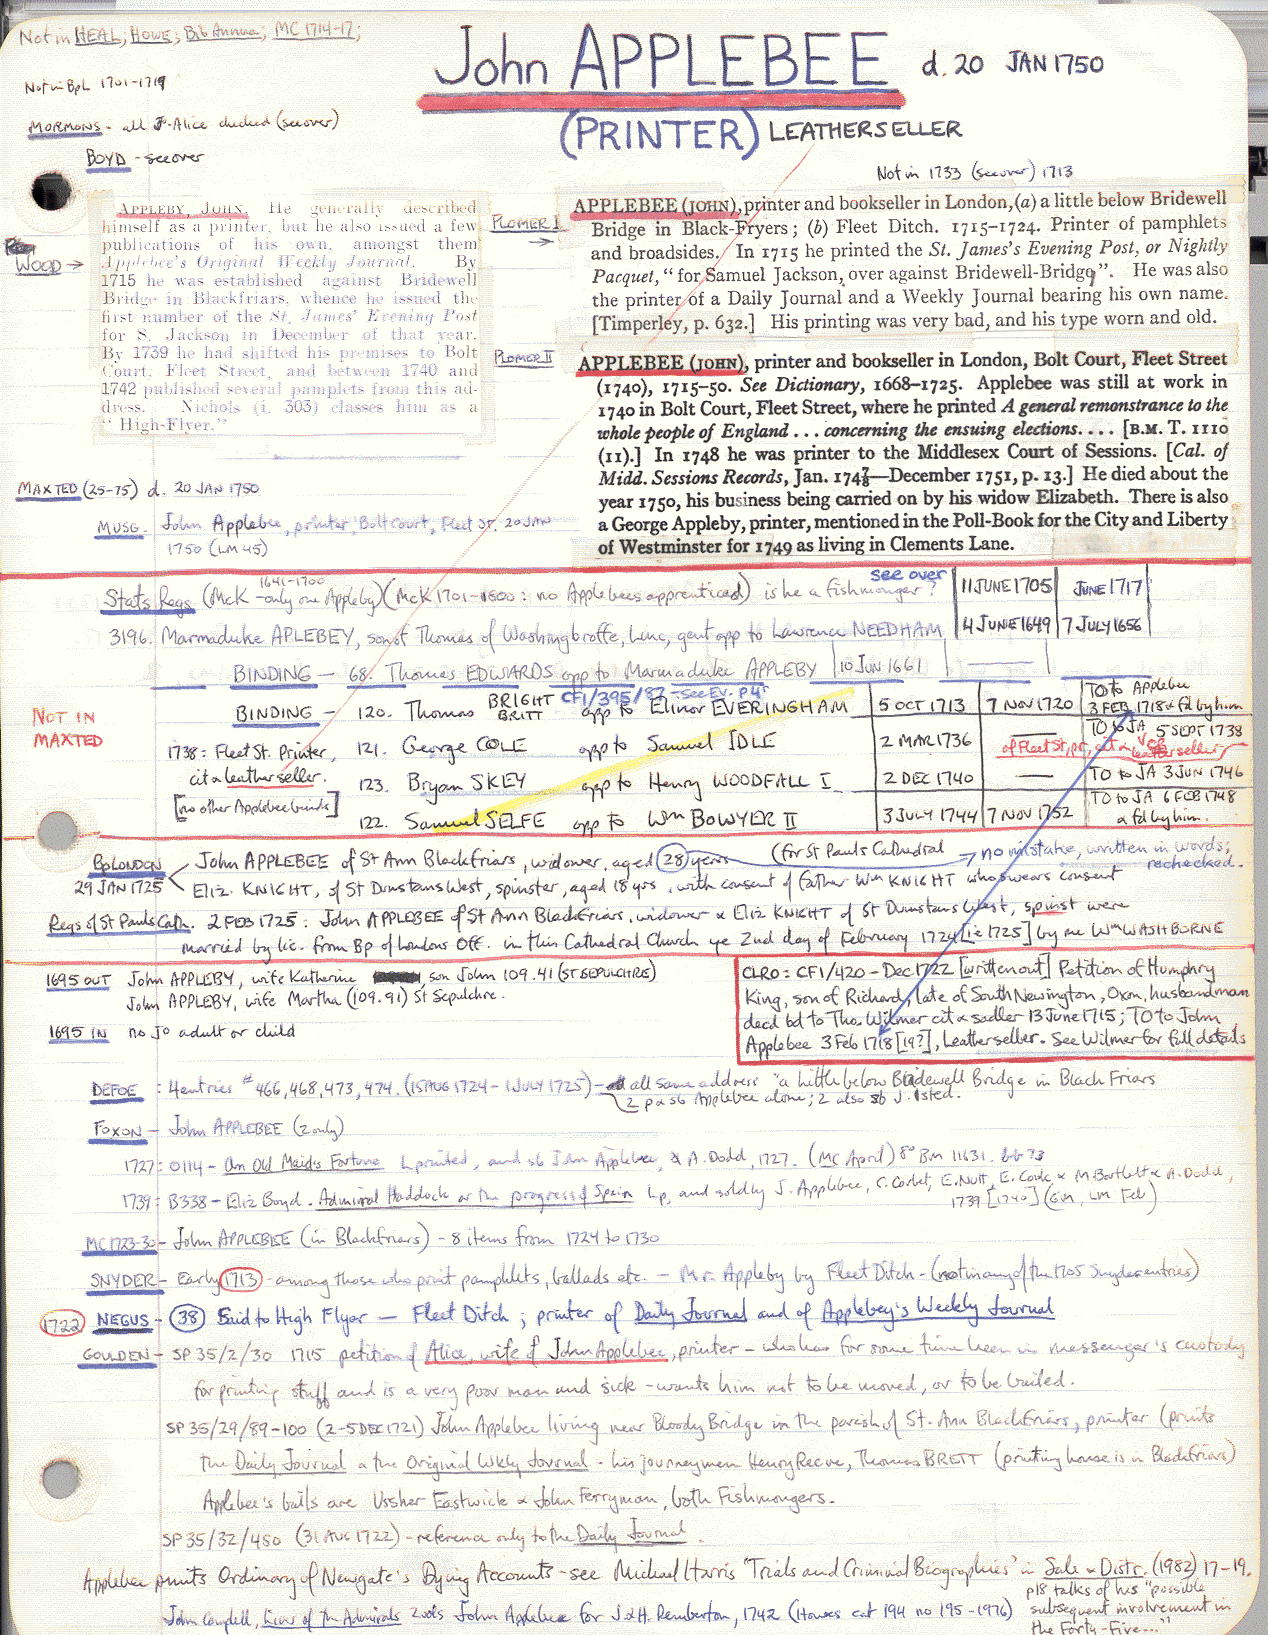 Not in HEAL; HOWE; Bib Annua; MC 1714-17;
John APPLEBEE d. 20 JAN 1750
Not in BpL 1701-1719
MORMONS - all J-Alice checked (see over)
(PRINTER) LEATHERSELLER
BOYD - see over
Not in 1733 (see over) 1713
WOOD →
APPLEBY, JOHN. He generally described
himself as a printer, but he also issued a few
publications of his own, amongst them
Applebee's Original Weekly Journal. By
1715 he was established against Bridewell
Bridge in Blackfriars, whence he issued the
first number of the St. James' Evening Post
for S. Jackson in December of that year.
By 1739 he had shifted his premises to Bolt
Court, Fleet Street, and between 1740 and
1742 published several pamplets from this ad-
dress. Nichols (i. 303) classes him as a
"High-Flyer."
PLOMER I →
APPLEBEE (JOHN), printer and bookseller in London, (a) a little below Bridewell
Bridge in Black-Fryers; (b) Fleet Ditch. 1715-1724. Printer of pamphlets
and broadsides. In 1715 he printed the St. James's Evening Post, or Nightly
Pacquet, "for Samuel Jackson, over against Bridewell-Bridge". He was also
the printer of a Daily Journal and a Weekly Journal bearing his own name.
[Timperley, p. 632.] His printing was very bad, and his type worn and old.
PLOMER II
APPLEBEE (JOHN), printer and bookseller in London, Bolt Court, Fleet Street
(1740), 1715-50. See Dictionary, 1668-1725. Applebee was still at work in
1740 in Bolt Court, Fleet Street, where he printed A general remonstrance to the
whole people of England ... concerning the ensuing elections.... [B.M. T. 1110
(11).] In 1748 he was printer to the Middlesex Court of Sessions. [Cal. of
Midd. Sessions Records, Jan. 174⅞—December 1751, p. 13.] He died about the
year 1750, his business being carried on by his widow Elizabeth. There is also
a George Appleby, printer, mentioned in the Poll-Book for the City and Liberty
of Westminster for 1749 as living in Clements Lane.
MAXTED (25-75) d. 20 JAN 1750
MUSG. John Applebee, printer Bolt court, Fleet St. 20 JAN
1750 (LM 45)
1641-1700 see over
Stats Regs (McK - only one Appleby) (McK 1701-1800: no Applebees apprenticed) is he a fishmonger? 11 JUNE 1705 JUNE 1717
3196. Marmaduke APLEBEY, son of Thomas of Washingbroffe, Linc, gent app to Lawrence NEEDHAM 4 JUNE 1649 7 JULY 1656
BINDING - 68. Thomas EDWARDS app to Marmaduke APPLEBY 10 JUN 1661
CF1/395/87 - see Ev. P4
NOT IN MAXTED
BINDING - 120. Thomas BRIGHT BRITT app to Elinor EVERINGHAM 5 OCT 1713 7 NOV 1720 TO to Applebee 3 FEB 1718 & fd by him
1738: Fleet St. Printer, cit & leatherseller.
121. George COLE app to Samuel IDLE 2 MAR 1736 TO to JA 5 SEPT 1738
of Fleet St, pr, cit & leatherseller
[no other Applebee binds]
123. Bryan SKEY app to Henry WOODFALL I 2 DEC 1740 TO to JA 3 JUN 1746
122. Samuel SELFE app to Wm BOWYER II 3 JULY 1744 7 NOV 1752 TO to JA 6 FEB 1748 & fd by him.
Bp LONDON 29 JAN 1725 John APPLEBEE of St Ann Blackfriars, widower, aged (28) years (for St Pauls Cathedral → no mistake, written in words; rechecked.
Eliz. KNIGHT, of St Dunstans West, spinster, aged 18 yrs, with consent of father Wm KNIGHT who swears consent
Regs of St Pauls Cath. 2 FEB 1725: John APPLEBEE of St Ann Blackfriars, widower & Eliz KNIGHT of St Dunstans West, spinst were
married by lic. from Bp of Londons Off. in this Cathedral Church ye 2nd day of February 1724 [ie 1725] by me Wm WASHBORNE
1695 OUT John APPLEBY, wife Katherine son John 109.41 (ST SEPULCHRES)
John APPLEBY, wife Martha (109.91) St Sepulchre.
1695 IN no Jo adult or child
CLRO: CF1/420 - Dec 1722 [written out] Petition of Humphry
King, son of Richard, late of South Newington, Oxon, husbandman
decd bd to Tho. Wilmer cit & sadler 13 June 1715; TO to John
Applebee 3 Feb 1718 [19?], Leatherseller. See Wilmer for full details
DEFOE: 4 entries # 466, 468, 473, 474. (15 AUG 1724 - 1 JULY 1725) - all same address "a little below Bridewell Bridge in Black Friars
2 p & sb Applebee alone; 2 also sb J. Isted.
FOXON - John APPLEBEE (2 only)
1727: O114 - An Old Maid's Fortune L printed, and sb John Applebee, & A. Dodd, 1727. (MC April) 8° BM 11631. bb 73
1739: B338 - Eliz Boyd. Admiral Haddock or the progress of Spain Lp, and sold by J. Applebee, C. Corbet, E. Nutt, E. Cooke & M Bartlett & A. Dodd,
1739 [1740] (GM, LM Feb)
MC 1723-30 - John APPLEBEE (in Blackfriars) - 8 items from 1724 to 1730
SNYDER - Early (1713) - among those who print pamphlets, ballads etc. - Mr. Appleby by Fleet Ditch - (not in any of the 1705 Snyder entries)
(1722) NEGUS - (38) Said to High Flyer — Fleet Ditch; printer of Daily Journal and of Applebey's Weekly Journal
GOULDEN - SP 35/2/30 1715 petition of Alice, wife of John Applebee, printer - who has for some time been in messenger's custody
for printing stuff and is a very poor man and sick - wants him not to be moved, or to be bailed.
SP 35/29/89-100 (2-5 DEC 1721) John Applebee living near Bloody Bridge in the parish of St. Ann Blackfriars, printer (prints
the Daily Journal & the Original Wkly Journal - his journeymen Henry Reeve, Thomas BRETT (printing house is in Blackfriars)
Applebee's bails are Ussher Eastwick & John Ferryman, both Fishmongers.
SP 35/32/450 (31 AUG 1722) - reference only to the Daily Journal.
Applebee prints Ordinary of Newgate's Dying Accounts - see Michael Harris 'Trials and Criminal Biographies' in Sale & Distr. (1982) 17-19.
p18 talks of his "possible subsequent involvement in the Forty-Five..."
John Campbell, Lives of the Admirals 2 vols John Applebee for J & H. Pemberton, 1742 (Howes cat 194 no 195 - 1976)